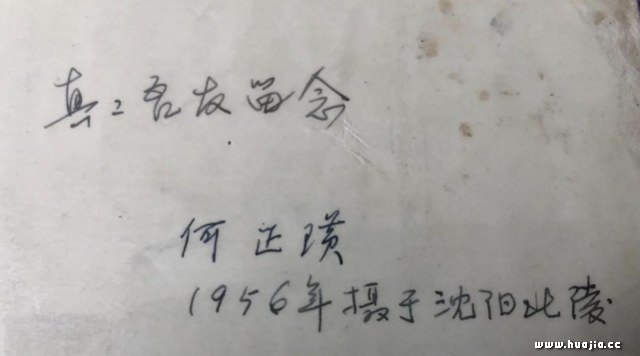 真：吾友留念
何正璜
1956年摄于沈阳北陵
www.huajia.cc